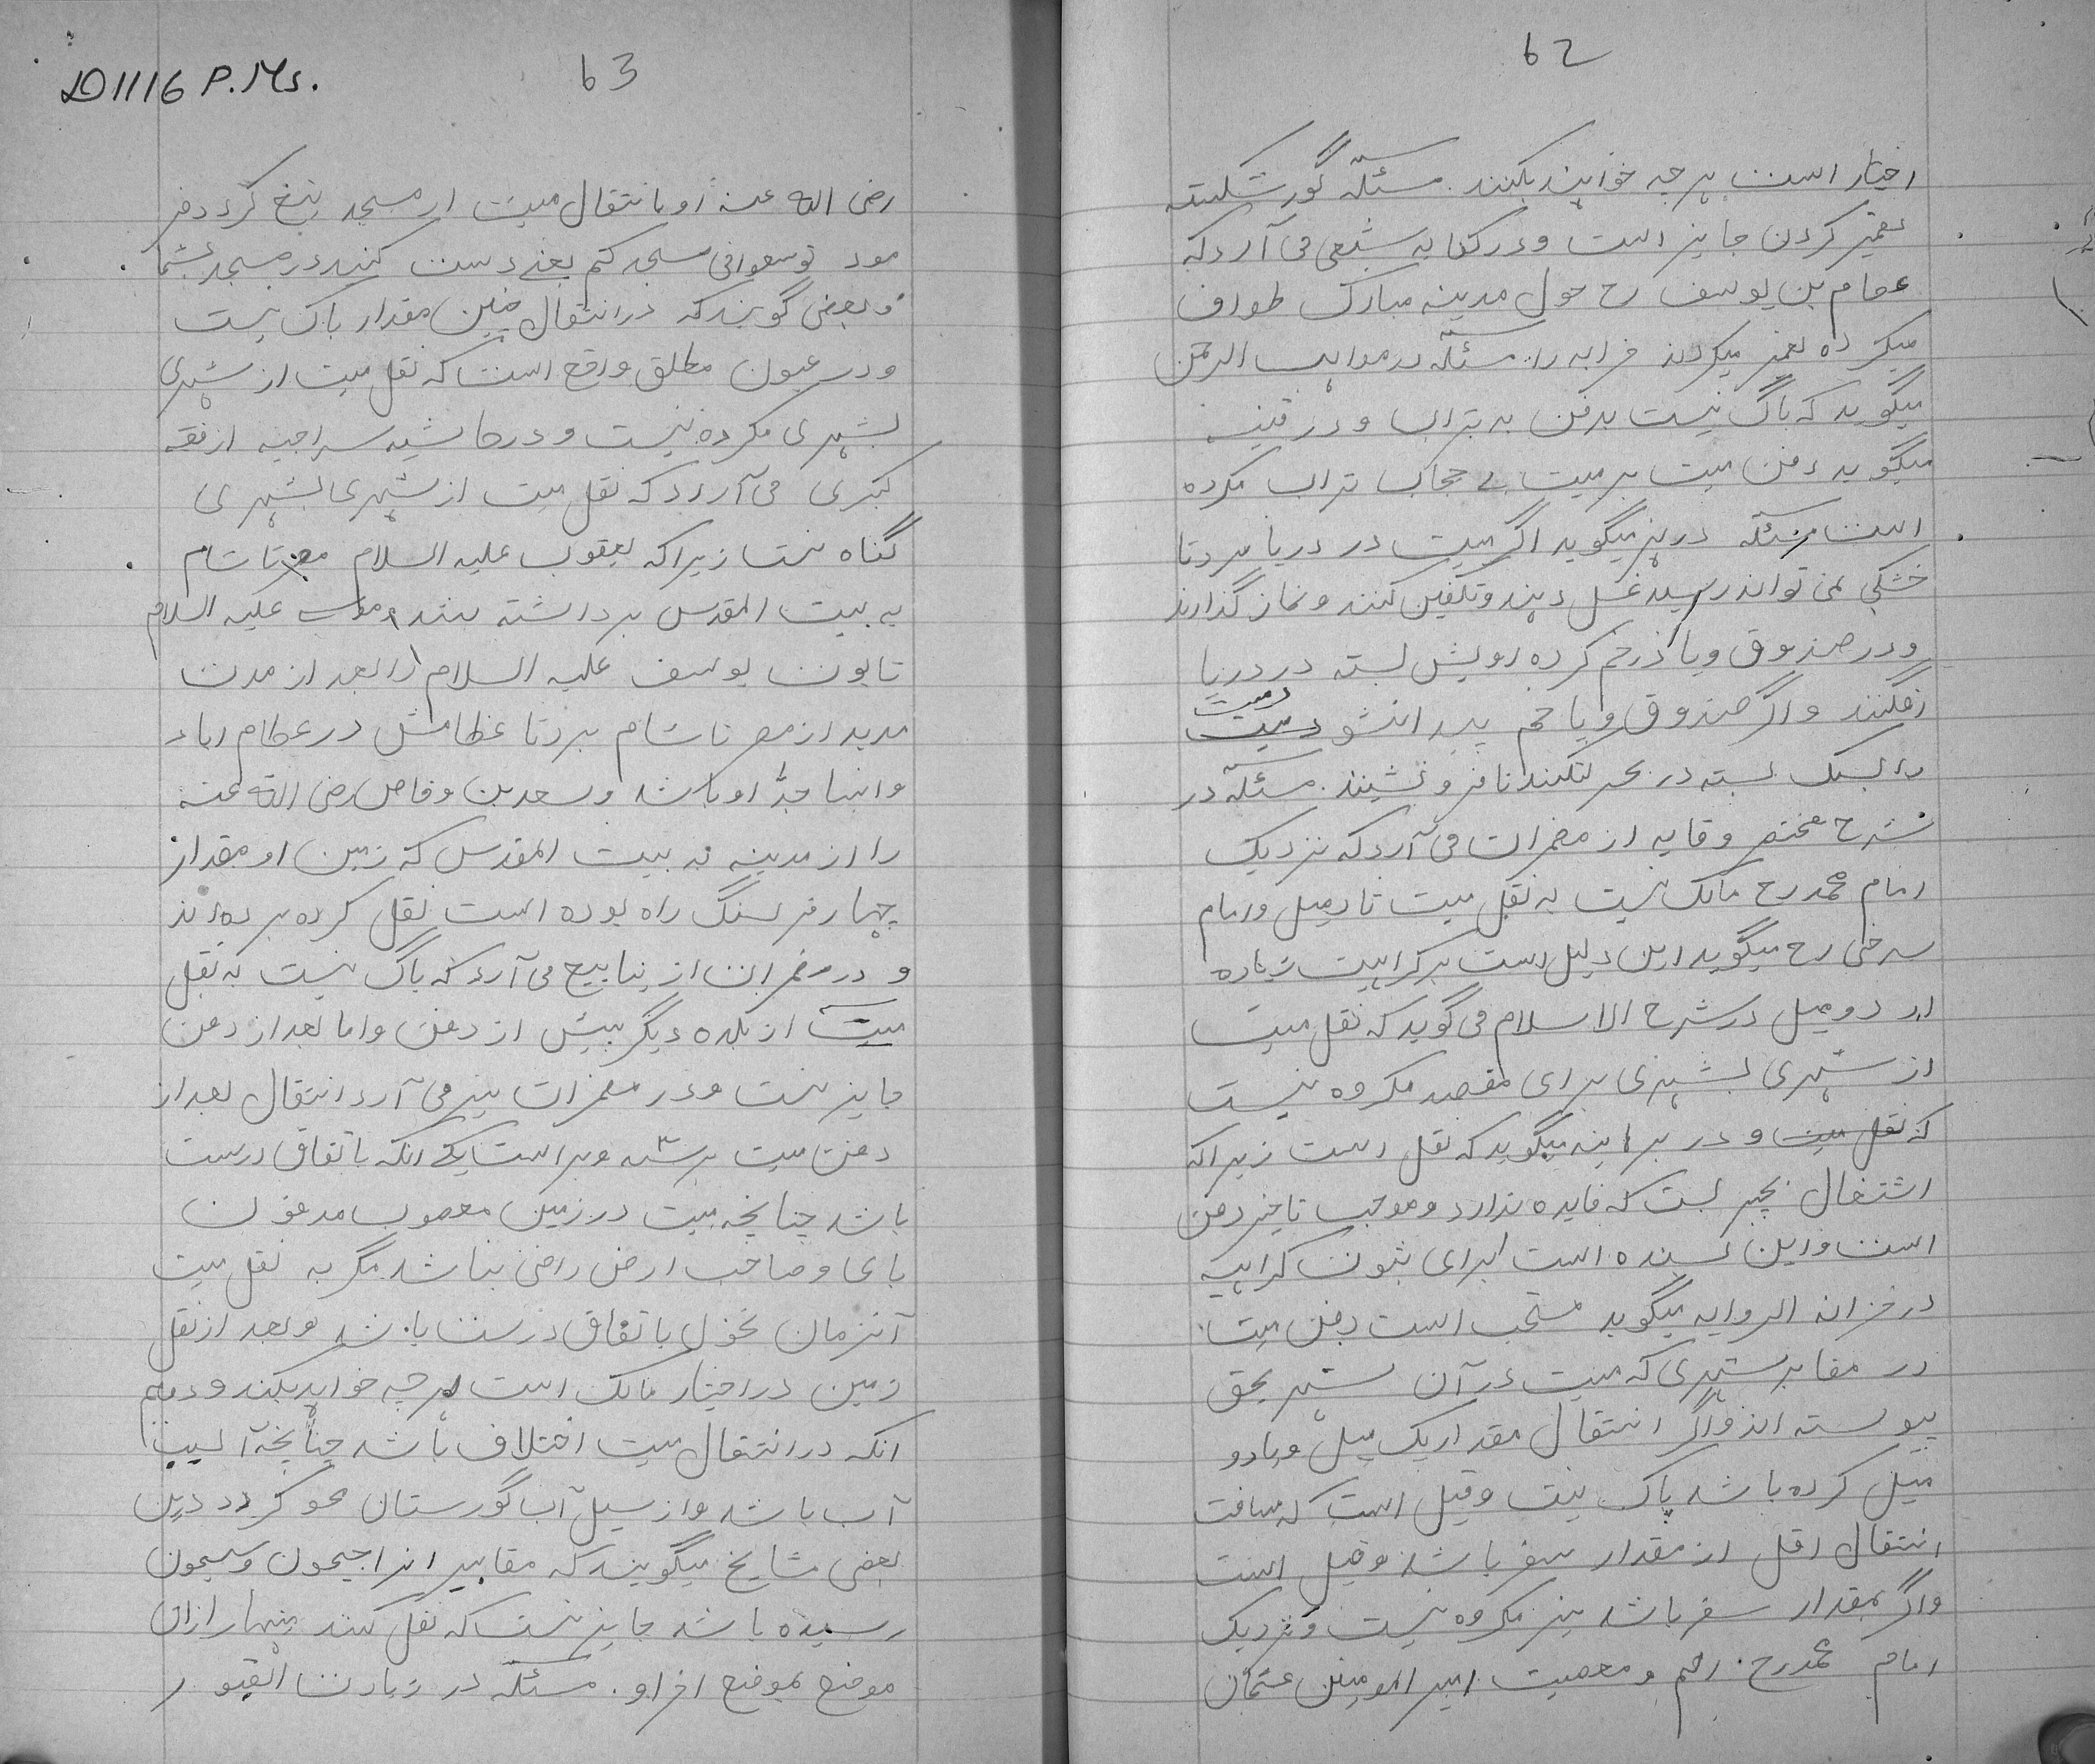 62
اختیار است هرچه خواهند بکنند. مسئله گور شکسته
تعمیر کردن جایز است و در کفایه شعبی می آرد که
عصام بن یوسف رح حول مدینه مبارک طواف
میکرد تعمیر میکردند خرابه را. مسئله در مواهب الرحمن
میگوید که باک نیست بدفن به تراب و در قنیه
میگوید دفن میت بر میت بے حجاب تراب مکروه
است مسئله در میگوید اگر میت در دریا مرد تا
خشکی نمی تواند رسید غسل دهند و تکفین کنند و نماز گذارند
و در صندوق ویا در خم کرده رویش بسته در دریا
افکنند و اگر صندوق ویا خم پیدا نشود میت
را بسنگ بسته در بحر فکنند تا فرو نشیند. مسئله در
شرح مختصر وقایه از مضمرات می آرد که نزدیک
امام محمد رح باک نیست به نقل میت تا دو میل و امام
سرخی رح میگوید این دلیل است بر کراهیت زیاده
از دو میل در شرح الاسلام می گوید که نقل میت
از شهری بشهری برای مقصد مکروه نیست
که نقل میت و در میگوید که نقل است زیرا که
اشتغال بچیز است که فایده ندارد و موجب تاخیر دفن
است و این بسنده است برای ثبوت کراهیة
در خزانه الروایه میگوید مستحب است دفن میت
در مقابر شهری که میت در آن شهر بحق
پیوسته اند و اگر انتقال مقدار یک میل ویا دو
میل کرده باشد باک نیست و قیل است که مسافت
انتقال اقل از مقدار سفر باشد و قیل است
و اگر بمقدار سفر باشد نیز مکروه نیست و نزدیک
امام محمد رح. اثم و معصیت امیر المومنین عثمان
D1116 P.Ms.
63
رضی الله عنه او با انتقال میت از مسجد کرد و فر
مود توسعوا فی مسجدکم یعنے وست کنید در مسجد شما
و بعضی گویند که در انتقال چنین مقدار باک نیست
و در عیون مطلق واقع است که نقل میت از شهری
بشهری مکروه نیست و در حاشیه سراجیه از فقه
کبری می آرد که نقل میت از شهری بشهری
گناه نیست زیرا که یعقوب علیه السلام مصر تا شام
به بیت المقدس برداشته شد و موسی علیه السلام
تابوت یوسف علیه السلام را بعد از مدت
مدید از مصر تا شام برد تا عظامش در عظام اباء
و ابنا جد او باشد و سعد بن وقاص رضی الله عنه
را از مدینه به بیت المقدس که زمین او مقدار
چهار فرسنگ راه بوده است نقل کرده برده اند
و در مضمرات از ینابیع می آرد که باک نیست به نقل
میت از بلده دیگر پیش از دفن و اما بعد از دفن
جایز نیست و در مضمرات نیز می آرد انتقال بعد از
دفن میت بر سه وجه است یکے آنکه باتفاق درست
باشد چنانچه میت در زمین مغصوب مدفون
باشد و صاحب ارض راضی نباشد مگر به نقل میت
آنزمان تحول باتفاق درست باشد و بعد از نقل
زمین در اختیار مالک است هرچه خواهد بکند و دویم
آنکه در انتقال میت اختلاف باشد چنانچه آسیب
آب باشد و از سیل آب گورستان محو گردد درین
بعضی مشایخ میگویند که مقابر اندر جیحون و سیحون
رسیده باشد جایز نیست که نقل کنند اینها را از آن
موضع بموضع اخراو. مسئله در زیارت القبور